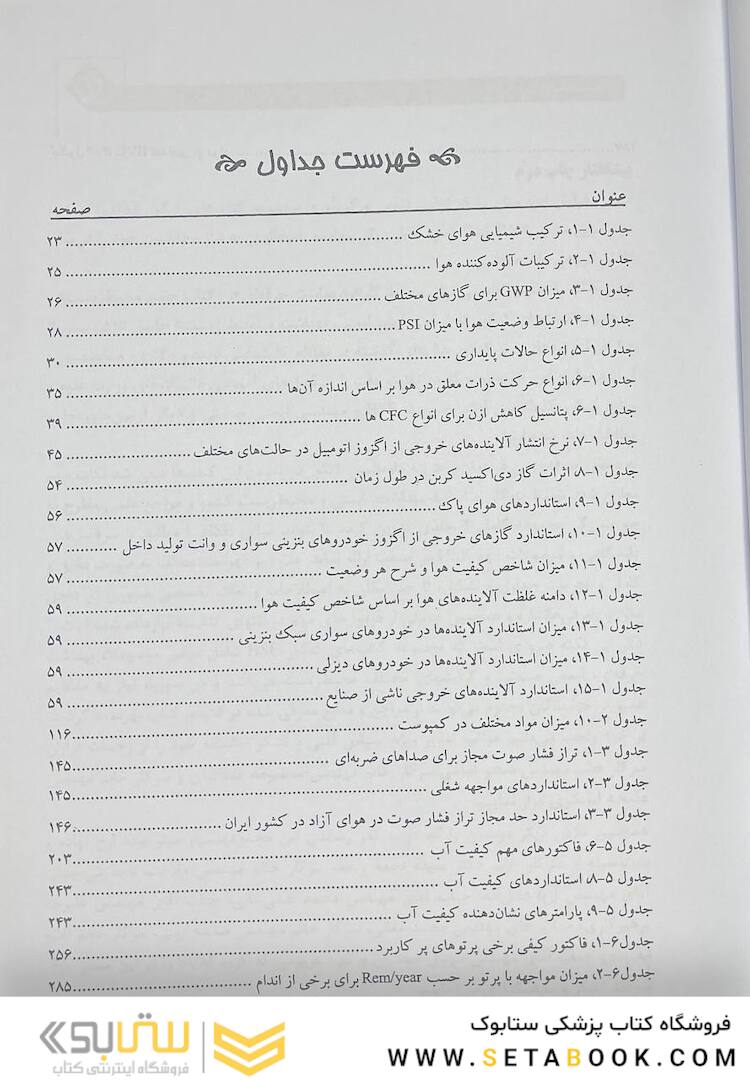 فهرست جداول
عنوان
صفحه
جدول ۱-۱، ترکیب شیمیایی هوای خشک ........ ۲۳
جدول ۱-۲، ترکیبات آلوده‌کننده هوا ........ ۲۵
جدول ۱-۳، میزان GWP برای گازهای مختلف ........ ۲۶
جدول ۱-۴، ارتباط وضعیت هوا با میزان PSI ........ ۲۸
جدول ۱-۵، انواع حالات پایداری ........ ۳۰
جدول ۱-۶، انواع حرکت ذرات معلق در هوا بر اساس اندازه آن‌ها ........ ۳۵
جدول ۱-۶، پتانسیل کاهش ازن برای انواع CFC ها ........ ۳۹
جدول ۱-۷، نرخ انتشار آلاینده‌های خروجی از اگزوز اتومبیل در حالت‌های مختلف ........ ۴۵
جدول ۱-۸، اثرات گاز دی‌اکسید کربن در طول زمان ........ ۵۴
جدول ۱-۹، استانداردهای هوای پاک ........ ۵۶
جدول ۱-۱۰، استاندارد گازهای خروجی از اگزوز خودروهای بنزینی سواری و وانت تولید داخل ........ ۵۷
جدول ۱-۱۱، میزان شاخص کیفیت هوا و شرح هر وضعیت ........ ۵۷
جدول ۱-۱۲، دامنه غلظت آلاینده‌های هوا بر اساس شاخص کیفیت هوا ........ ۵۹
جدول ۱-۱۳، میزان استاندارد آلاینده‌ها در خودروهای سواری سبک بنزینی ........ ۵۹
جدول ۱-۱۴، میزان استاندارد آلاینده‌ها در خودروهای دیزلی ........ ۵۹
جدول ۱-۱۵، استاندارد آلاینده‌های خروجی ناشی از صنایع ........ ۵۹
جدول ۲-۱۰، میزان مواد مختلف در کمپوست ........ ۱۱۶
جدول ۳-۱، تراز فشار صوت مجاز برای صداهای ضربه‌ای ........ ۱۴۵
جدول ۳-۲، استانداردهای مواجهه شغلی ........ ۱۴۵
جدول ۳-۳، استاندارد حد مجاز تراز فشار صوت در هوای آزاد در کشور ایران ........ ۱۴۶
جدول ۵-۶، فاکتورهای مهم کیفیت آب ........ ۲۰۳
جدول ۵-۸، استانداردهای کیفیت آب ........ ۲۴۳
جدول ۵-۹، پارامترهای نشان‌دهنده کیفیت آب ........ ۲۴۳
جدول۶-۱، فاکتور کیفی برخی پرتوهای پر کاربرد ........ ۲۵۶
جدول۶-۲، میزان مواجهه با پرتو بر حسب Rem/year برای برخی از اندام ........ ۲۸۵
فروشگاه کتاب پزشکی ستابوک
WWW.SETABOOK.COM
ستابوک
فروشگاه اینترنتی کتاب